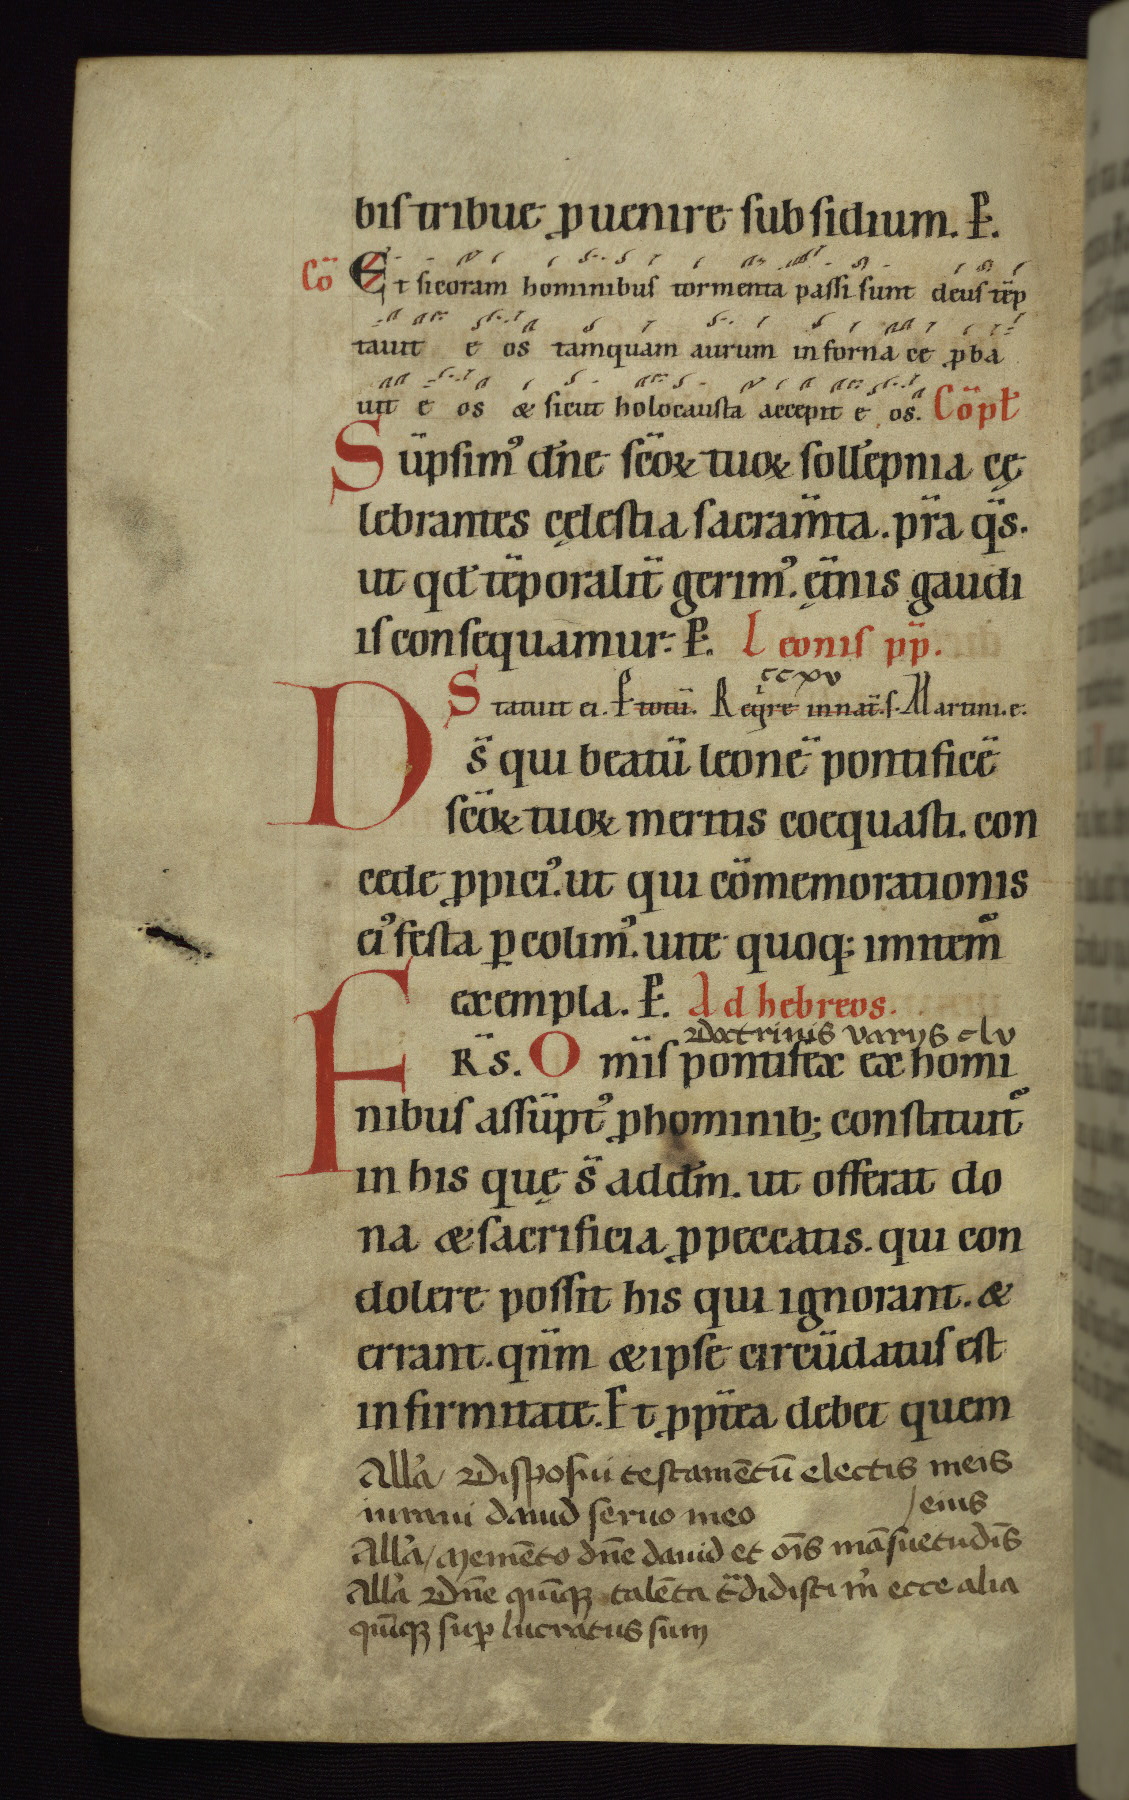 bis tribue ꝑuenire subsidium. P̄.
Cō Et si coram hominibus tormenta passi sunt deus tēp
tauit e os tamquam aurum in forna ce ꝓba
uit e os & sicut holocausta accepit e os. Cōpł
Sūpsim᾿ dn̄e sc̄oꝝ tuoꝝ sollēpnia cę
lebrantes cęlestia sacram̄ta. pr̄a q̄s.
ut qđ tēporalit̄ gerim᾿. ęt̄nis gaudi
is consequamur. P̄. Leonis pp̄.
ccxv
Statuit ei. P̄ totū. Require in nat̄. s. Martini. e.
Ds̄ qui beatū leonē pontificē
sc̄oꝝ tuoꝝ meritis coequasti. con
cede ꝓpici᾿. ut qui cōmemorationis
ei᾿ festa ꝑcolim᾿. uite quoq; imitem᾿
exempla. P̄. Ad hebreos.
Doctrinis varijs clv
FR̄s. Om̄is pontifex ex homi
nibus assūpt᾿ ꝓ hominib; constituit᾿
in his quę s̄ ad dm̄. ut offerat do
na & sacrificia ꝓ peccatis. qui con
dolere possit his qui ignorant. &
errant. qn̄m & ipse circūdatus est
infirmitate. Et ꝓpt̄ea debet quem
All'a Disposui testamētū electis meis
iuraui dauid seruo meo / eius
All'a / Memēto dn̄e dauid et oīs māsuetudīs
All'a Dn̄e quīqꝫ talēta t̄didisti m᾿ ecce alia
quīqꝫ suꝑ lucratus sum